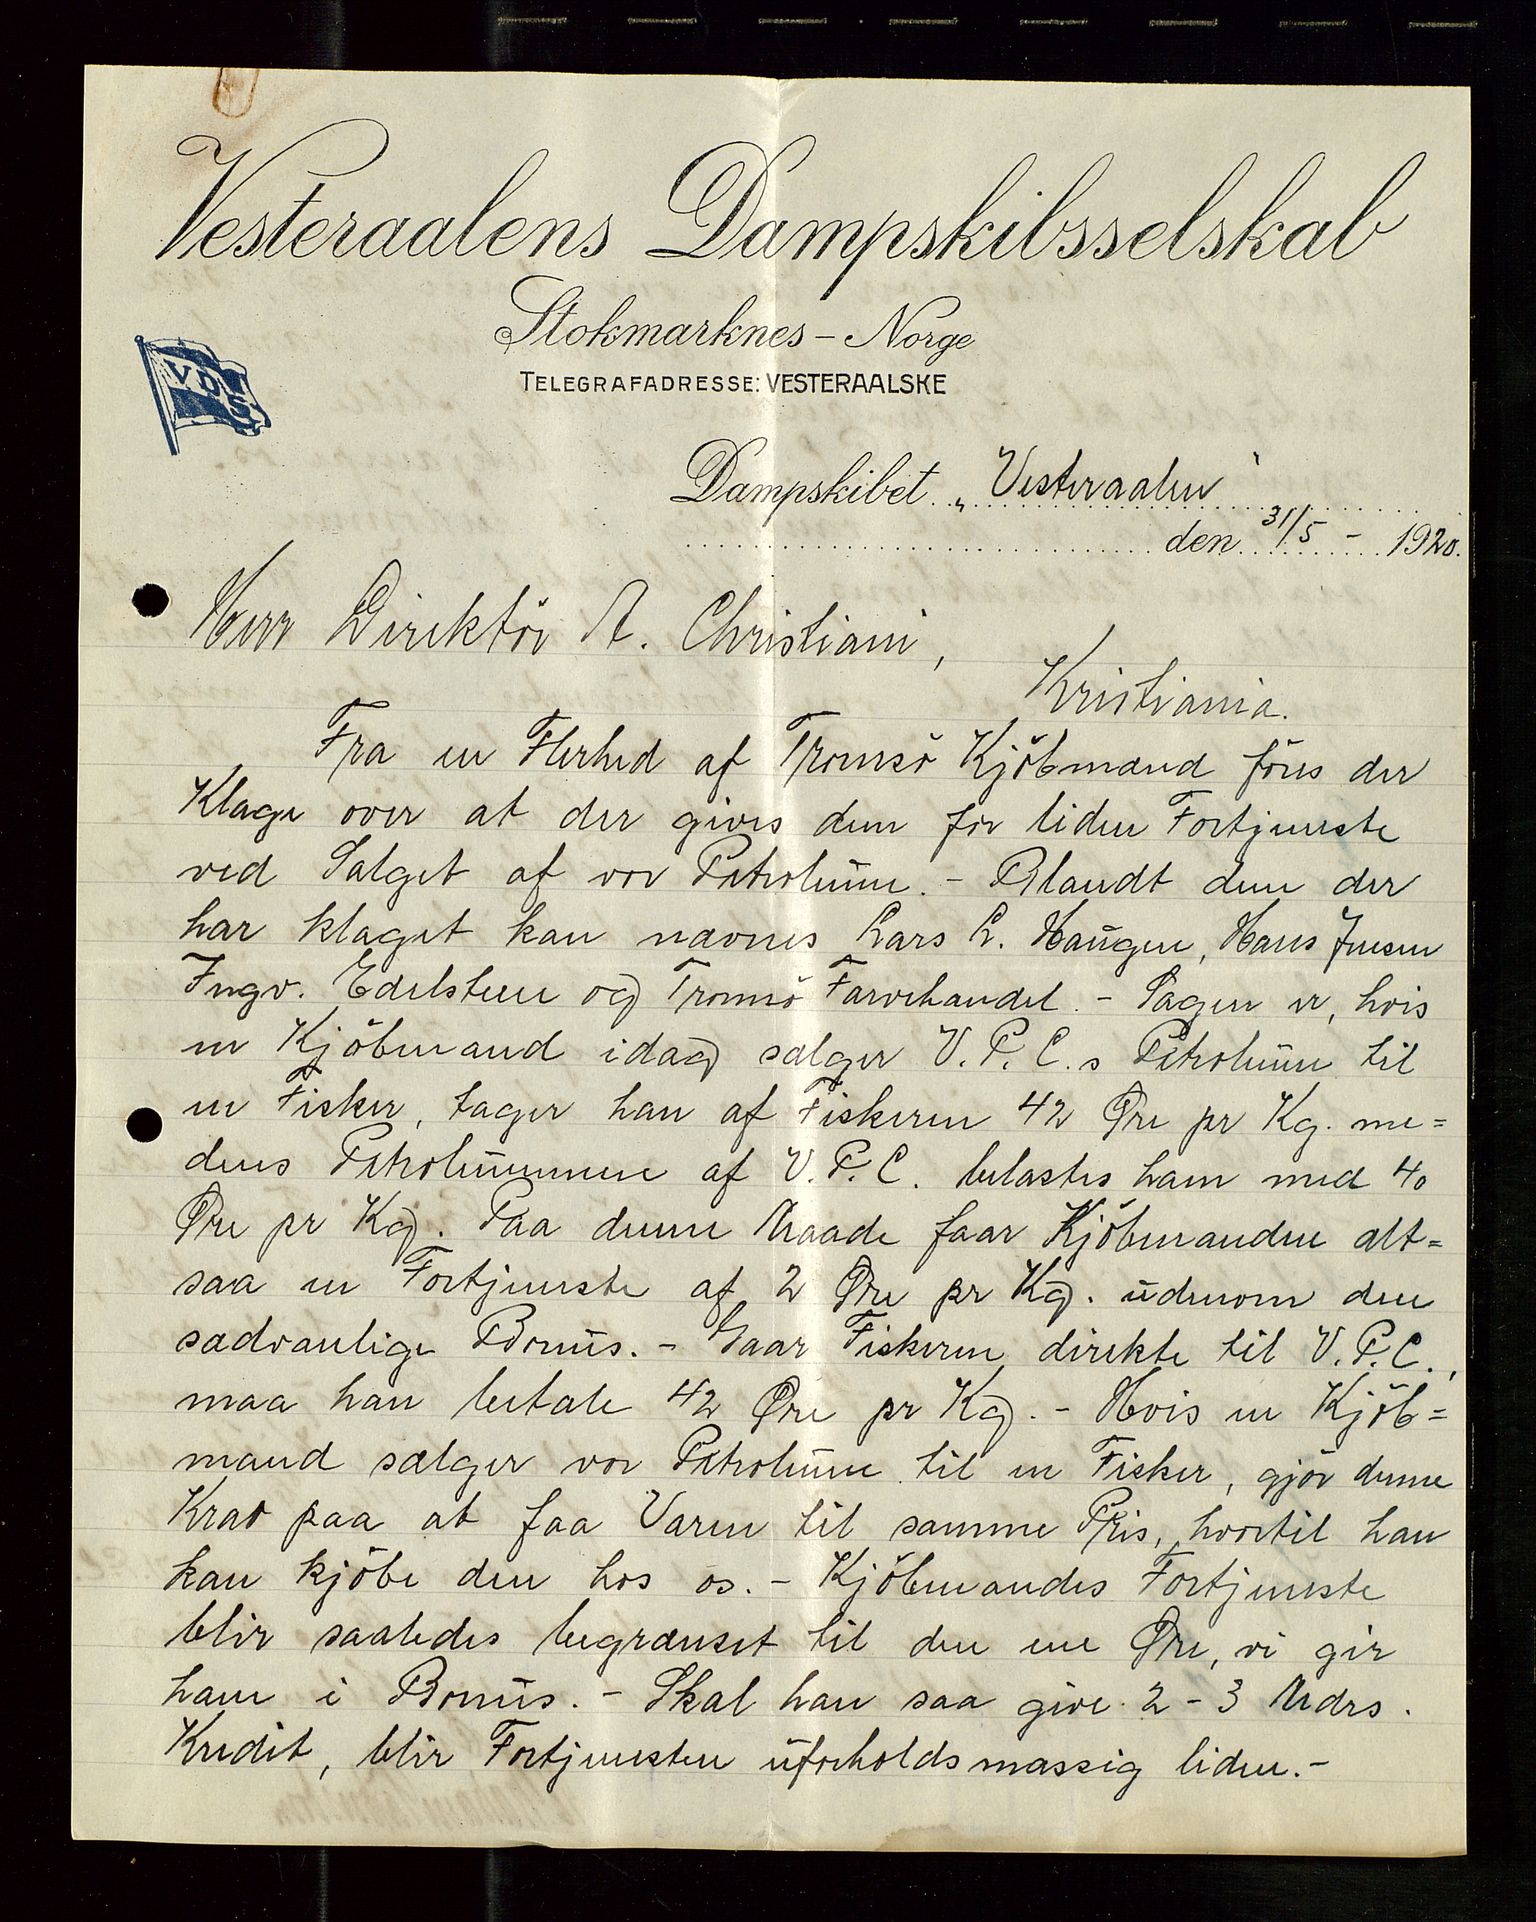 Vesteraalens Dampskibsselskab
Stokmarknes - Norge
TELEGRAFADRESSE: VESTERAALSKE
V D S
Dampskibet „Vesteraalen"
den 31/5 - 1920.
Herr Direktör A. Christiani,
Kristiania.
Fra en Flerhed af Tromsö Kjöbmænd föres der
Klage over at der gives dem for liden Fortjeneste
ved Salget af vor Petroleum. - Blandt dem der
har klaget kan nævnes Lars L. Haugen, Hans Jensen
Ingv. Edelsteen og Tromsö Farvehandel. - Sagen er, hvis
en Kjöbmand idag sælger V. P. C.s Petroleum til
en Fisker, tager han af Fiskeren 42 Øre pr Kg. me=
dens Petroleummen af V. P. C. belastes ham med 40
Øre pr Kg. Paa denne Maade faar Kjöbmanden alt=
saa en Fortjeneste af 2 Øre pr Kg. udenom den
sædvanlige Bonus. - Gaar Fiskeren direkte til V. P. C.,
maa han betale 42 Øre pr Kg. - Hvis en Kjöb=
mand sælger vor Petroleum til en Fisker, gjör denne
Krav paa at faa Varen til samme Pris, hvortil han
kan kjöbe den hos os. - Kjöbmandes Fortjeneste
blir saaledes begrænset til den ene Øre, vi gir
ham i Bonus. - Skal han saa give 2 - 3 Mdrs.
Kredit, blir Fortjenesten uforholdsmæssig liden. -